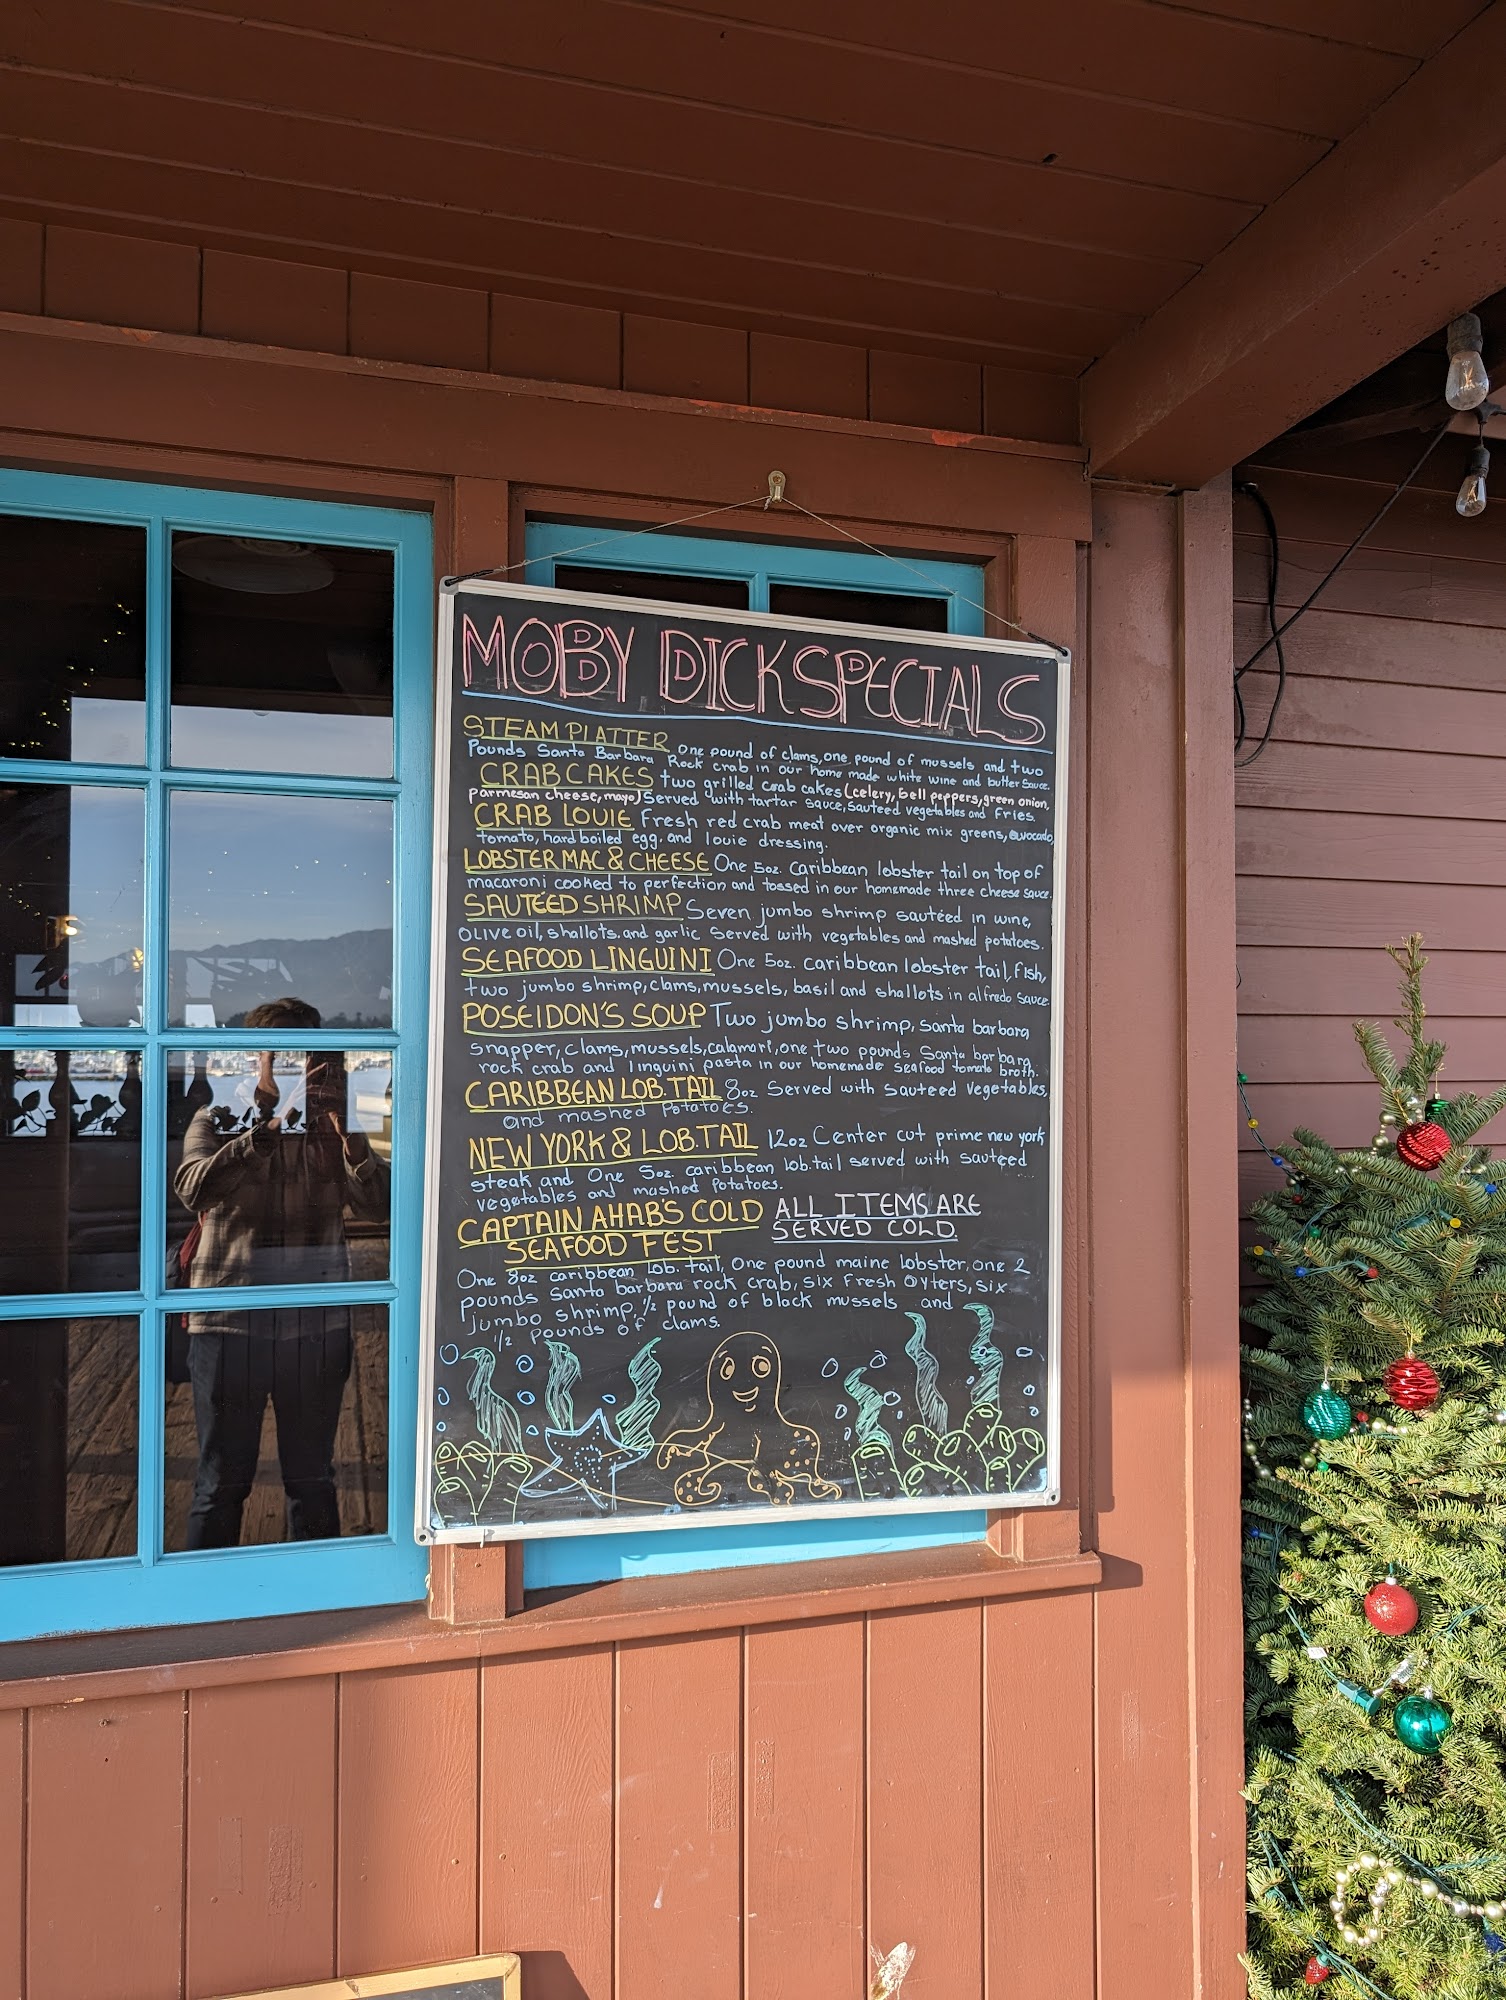 MOBY DICK SPECIALS
STEAM PLATTER One pound of clams, one pound of mussels and two
Pounds Santa Barbara Rock crab in our home made white wine and butter sauce.
CRAB CAKES two grilled crab cakes (celery, bell peppers, green onion,
parmesan cheese, mayo) Served with tartar sauce, sauteed vegetables and Fries.
CRAB LOUIE Fresh red crab meat over organic mix greens, avocado,
tomato, hard boiled egg, and louie dressing.
LOBSTER MAC & CHEESE One 5oz. Caribbean lobster tail on top of
macaroni cooked to perfection and tossed in our homemade three cheese sauce.
SAUTEED SHRIMP Seven jumbo shrimp sautéed in wine,
OLIVE oil, shallots. and garlic Served with vegetables and mashed potatoes.
SEAFOOD LINGUINI One 5oz. Caribbean lobster tail, fish,
two jumbo shrimp, clams, mussels, basil and shallots in alfredo sauce.
POSEIDON'S SOUP Two jumbo shrimp, santa barbara
snapper, clams, mussels, calamari, one two pounds Santa barbara
rock crab and linguini pasta in our homemade seafood tomato broth.
CARIBBEAN LOB. TAIL 8oz Served with Sauteed Vegetables,
and mashed Potatoes.
NEW YORK & LOB. TAIL 12oz Center cut prime new york
steak and One 5oz caribbean lob. tail served with sauteed
vegetables and mashed potatoes.
CAPTAIN AHAB'S COLD ALL ITEMS ARE
SEAFOOD FEST SERVED COLD.
One 8oz caribbean lob. tail, One pound maine lobster, one 2
pounds Santa barbara rock crab, six Fresh Oyters, six
jumbo shrimp, 1/2 pound of black mussels and
1/2 pounds of clams.